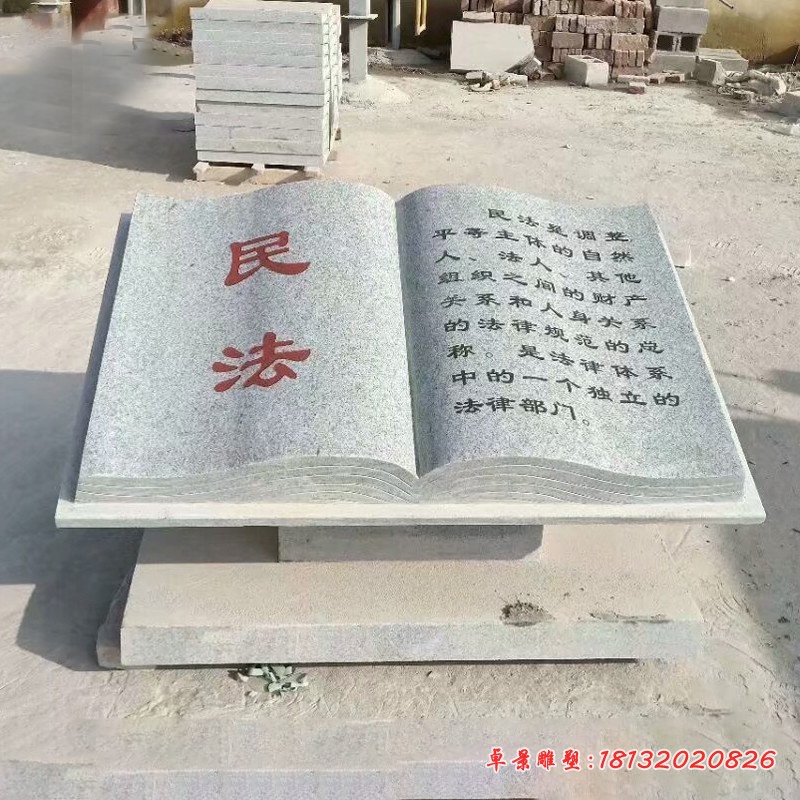 民
法
民法是调整
平等主体的自然
人、法人、其他
组织之间的财产
关系和人身关系
的法律规范的总
称。是法律体系
中的一个独立的
法律部门。
卓景雕塑:18132020826